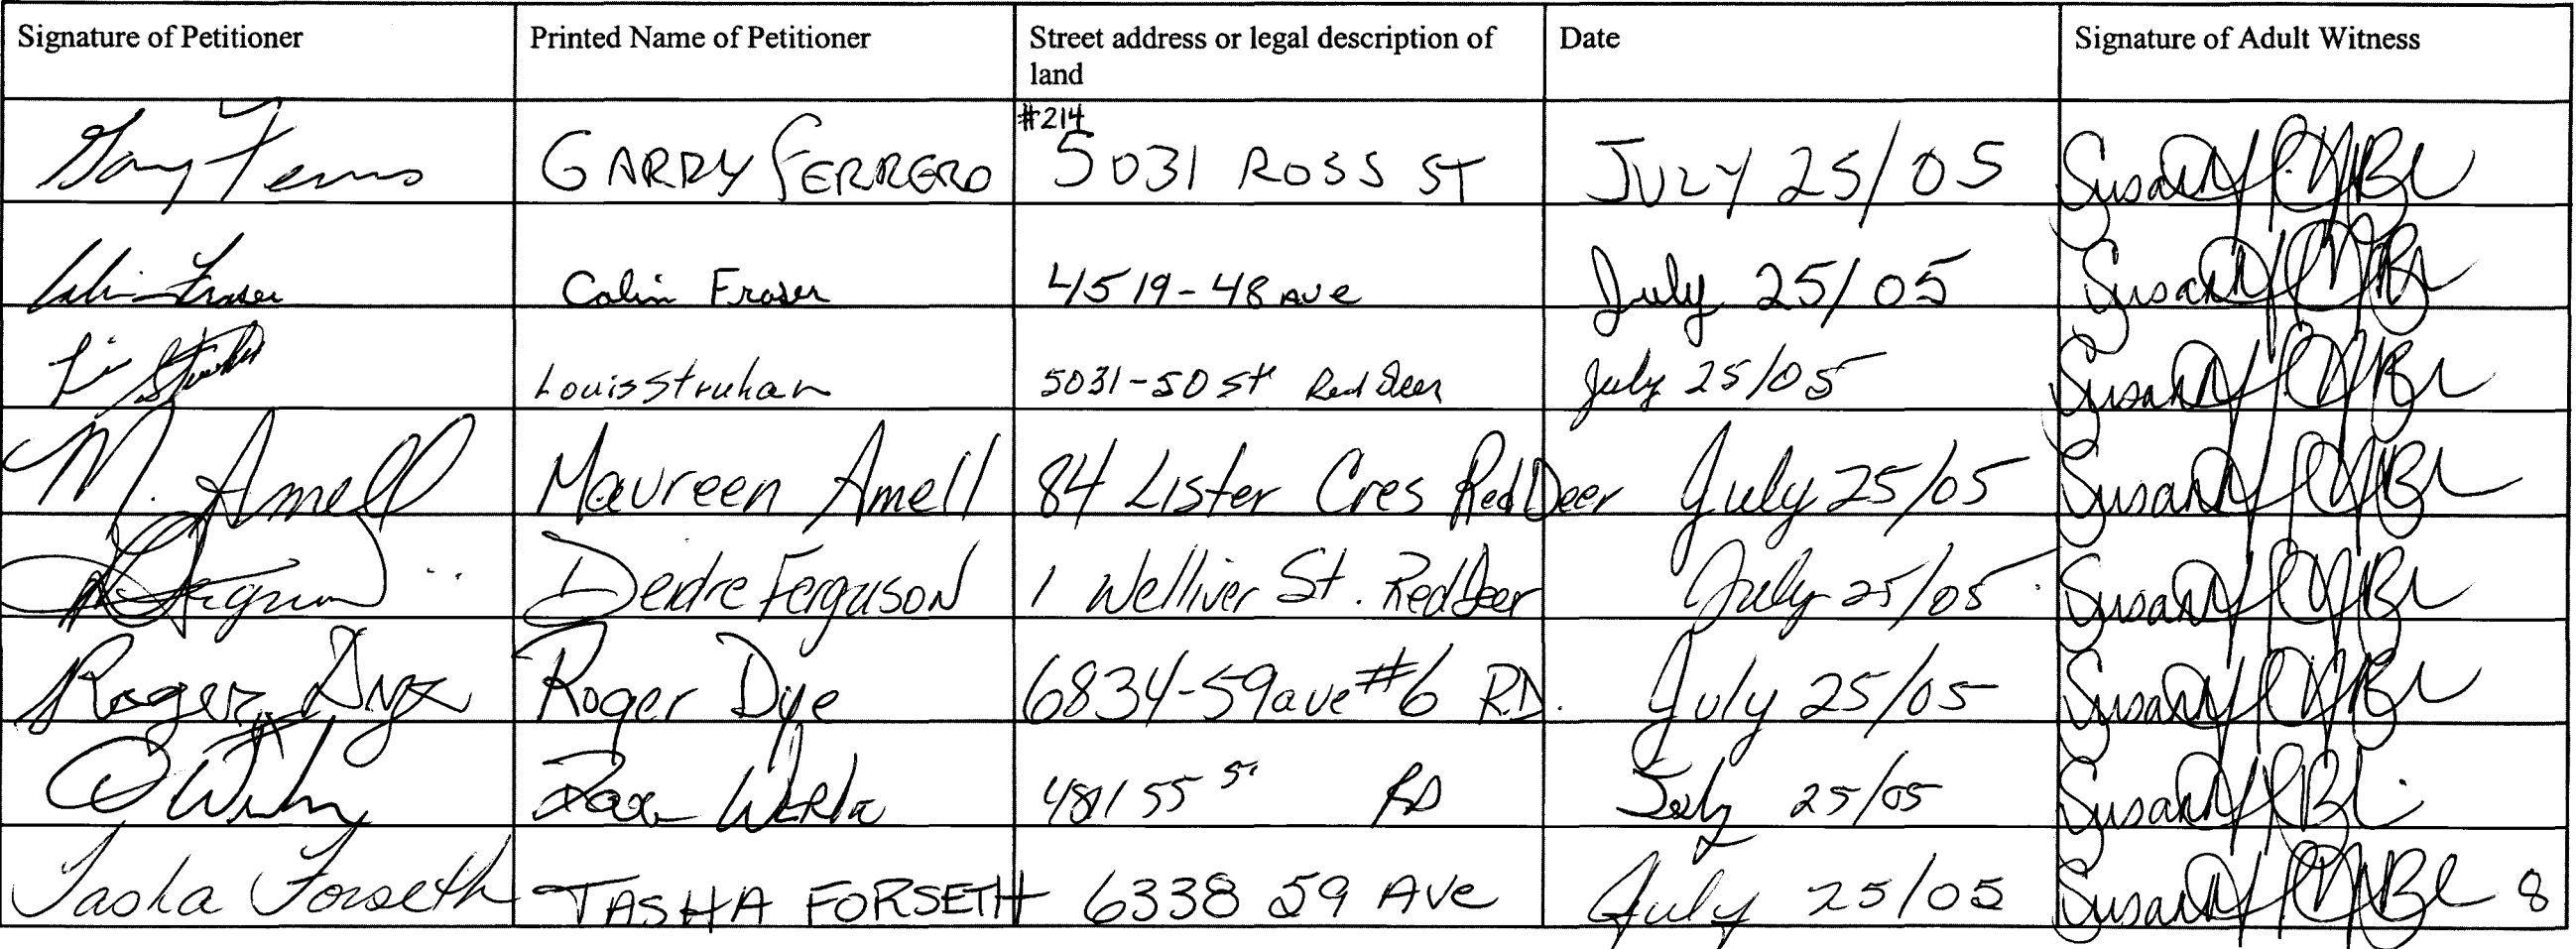 Signature of Petitioner Printed Name of Petitioner Street address or legal description of Date Signature of Adult Witness
land
#214
GARRY FERRERO 5031 ROSS ST JULY 25/05 Susan
Colin Fraser Colin Fraser 4519-48 AVE July 25/05 Susan
Louis Struhan 5031-50 St Red Deer July 25/05 Susan
M. Amell Maureen Amell 84 Lister Cres Red Deer July 25/05 Susan
Ferguson Deirdre Ferguson 1 Welliver St. Red Deer July 25/05 Susan
Roger Dye Roger Dye 6834-59 ave #6 R.D. July 25/05 Susan
55 St RD July 25/05 Susan
Tasha Forseth TASHA FORSETH 6338 59 AVE July 25/05 Susan 8